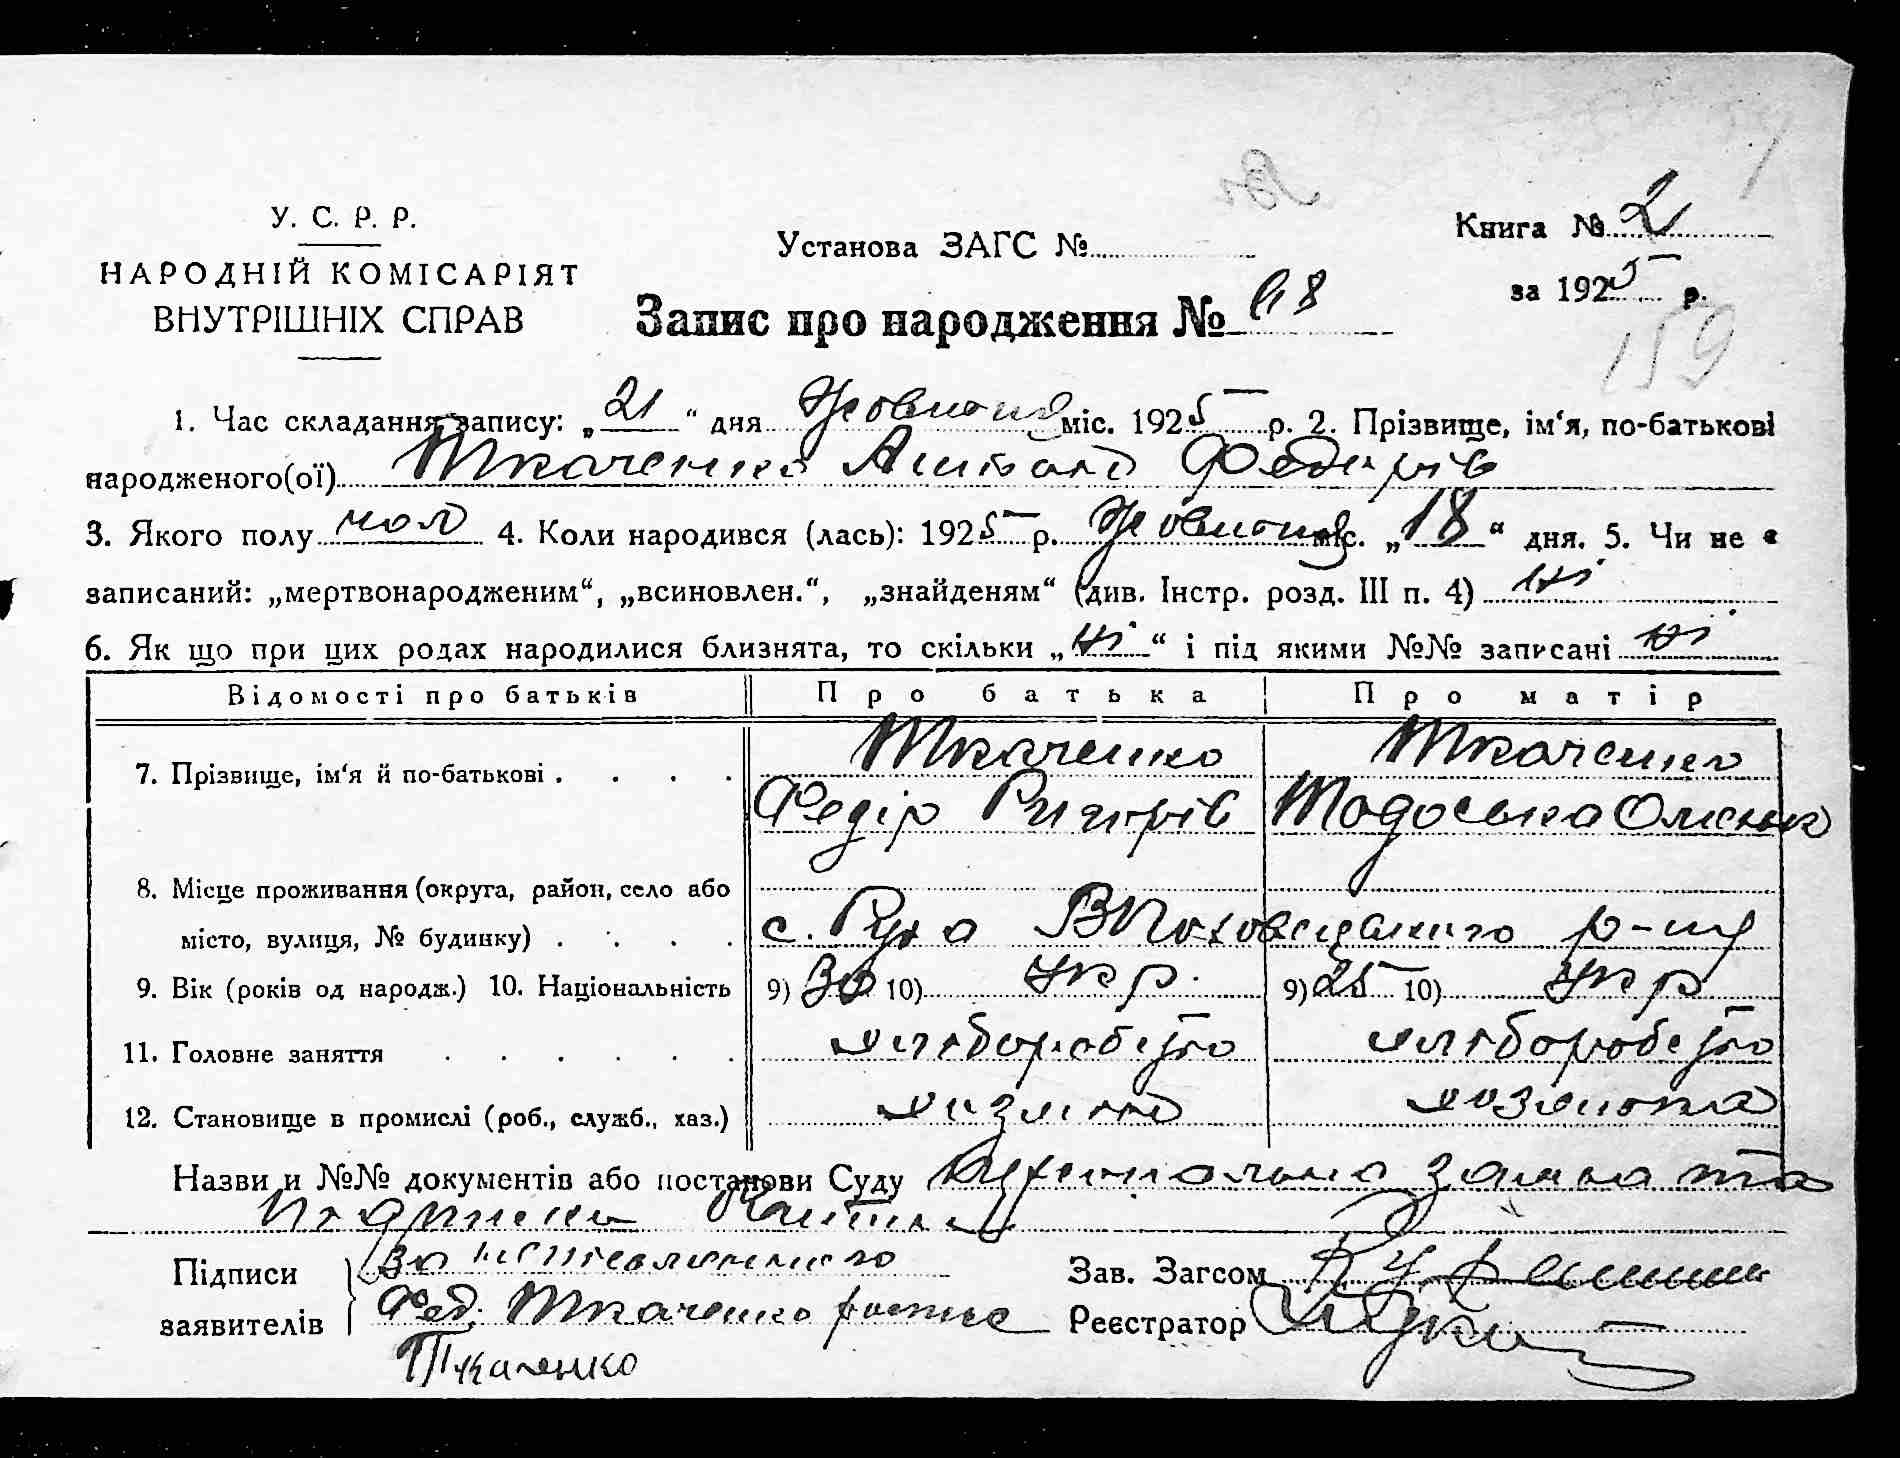 У. С. Р. Р.
НАРОДНІЙ КОМІСАРІЯТ
ВНУТРІШНІХ СПРАВ
Установа ЗАГС №
Книга № 2
за 1925 р.
159
Запис про народження № 48
1. Час складання запису: „21“ дня Жовтня міс. 1925 р. 2. Прізвище, ім‘я, по-батькові
народженого(ої) Ткаченко Антон Федорів
3. Якого полу чол 4. Коли народився (лась): 1925 р. Жовтня міс. „18“ дня. 5. Чи не є
записаний: „мертвонародженим“, „всиновлен.“, „знайденям“ (див. Інстр. розд. III п. 4) ні
6. Як що при цих родах народилися близнята, то скільки „ні“ і під якими №№ записані ні
Відомості про батьків Про батька Про матір
7. Прізвище, ім‘я й по-батькові . . . . Ткаченко Ткаченко
Федір Тодоська
8. Місце проживання (округа, район, село або
місто, вулиця, № будинку) . . . . с. р-ну
9. Вік (років од народж.) 10. Національність 9) 30 10) Укр. 9) 25 10) Укр
11. Головне заняття . . . . . . хліборобство хліборобство
12. Становище в промислі (роб., служб., хаз.) хазяїн хазяйка
Назви и №№ документів або постанови Суду заява та
Підписи
заявителів
За
Фед. Ткаченко
Ткаченко
Зав. Загсом
Реєстратор